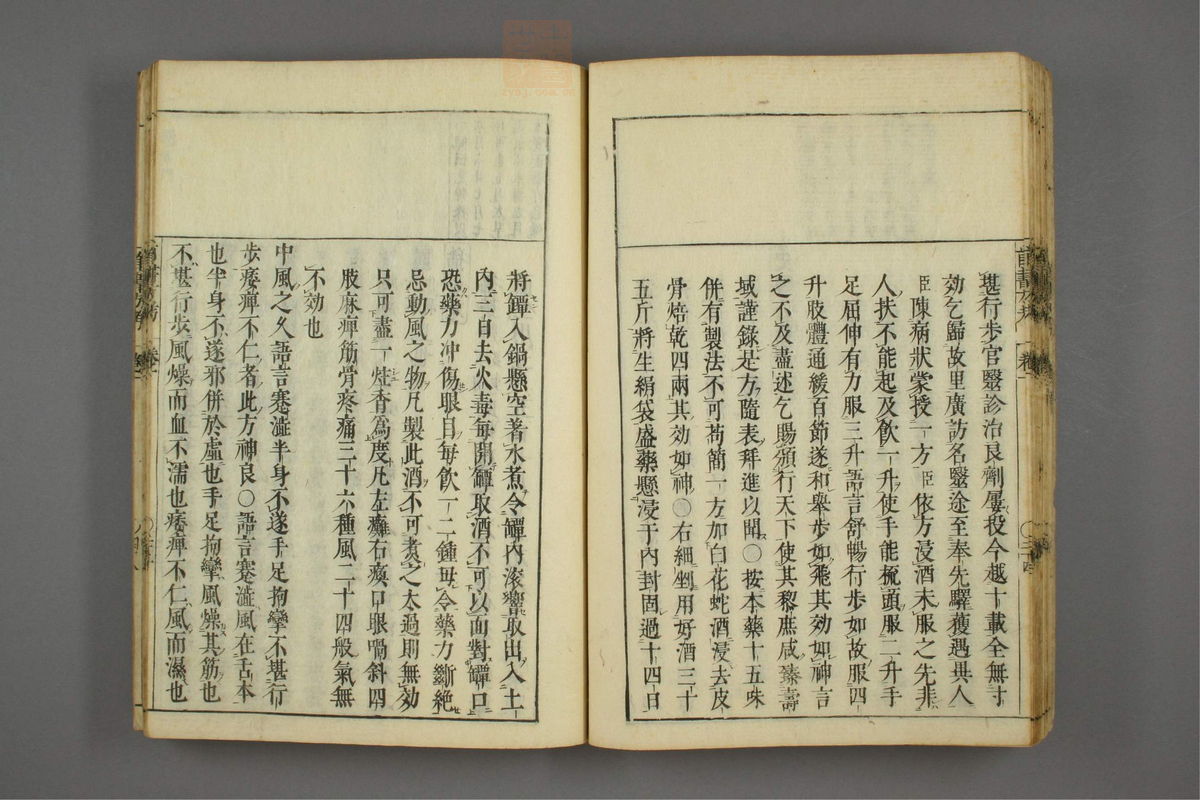 堪行步官醫診治良劑屢投今越十載全無寸
効乞歸故里廣訪名醫途至奉先驛獲遇異人
臣陳病狀蒙授一方臣依方浸酒未服之先非
人扶不能起及飲一升使手能梳頭服二升手
足屈伸有力服三升語言舒暢行步如故服四
升肢體通緩百節遂和舉步如飛其効如神言
之不及盡述乞賜頒行天下使其黎庶咸臻壽
域謹錄是方隨表拜進以聞○按本藥十五味
併有製法不可苟簡一方加白花蛇酒浸去皮
骨焙乾四兩其効如神○右細剉用好酒三十
五斤將生絹袋盛藥懸浸于內封固過十四日
將罈入鍋懸空著水煮令罈內滾響取出入土
內三日去火毒每開罈取酒不可以面對罈口
恐藥力冲傷眼目每飲一二鍾毋令藥力斷絶
忌動風之物凡製此酒不可煑之太過則無効
只可盡一炷香爲度凡左癱右瘓口眼喎斜四
肢麻痺筋骨疼痛三十六種風二十四般氣無
不効也
中風之久語言蹇澁半身不遂手足拘攣不堪行
步痿痺不仁者此方神良○語言蹇澁風在舌本
也半身不遂邪併於虛也手足拘攣風燥其筋也
不堪行步風燥而血不濡也痿痺不仁風而濕也